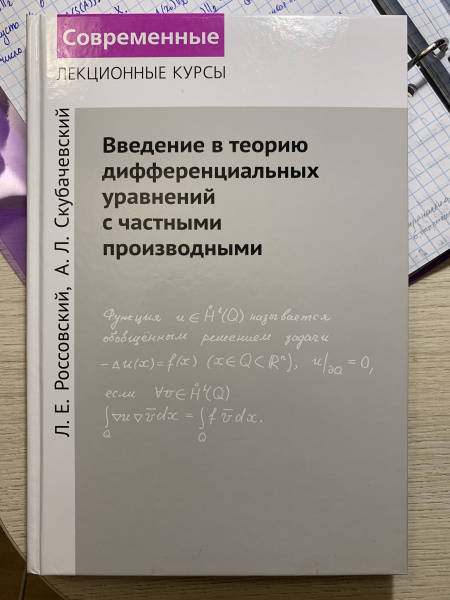 Современные
ЛЕКЦИОННЫЕ КУРСЫ
Л. Е. Россовский, А. Л. Скубачевский
Введение в теорию
дифференциальных
уравнений
с частными
производными
Функция u ∈ H̊¹(Q) называется
обобщённым решением задачи
−Δu(x) = f(x) (x ∈ Q ⊂ ℝⁿ), u|∂Q = 0,
если ∀v ∈ H̊¹(Q)
∫_Q ∇u ∇v̅ dx = ∫_Q f v̅ dx.